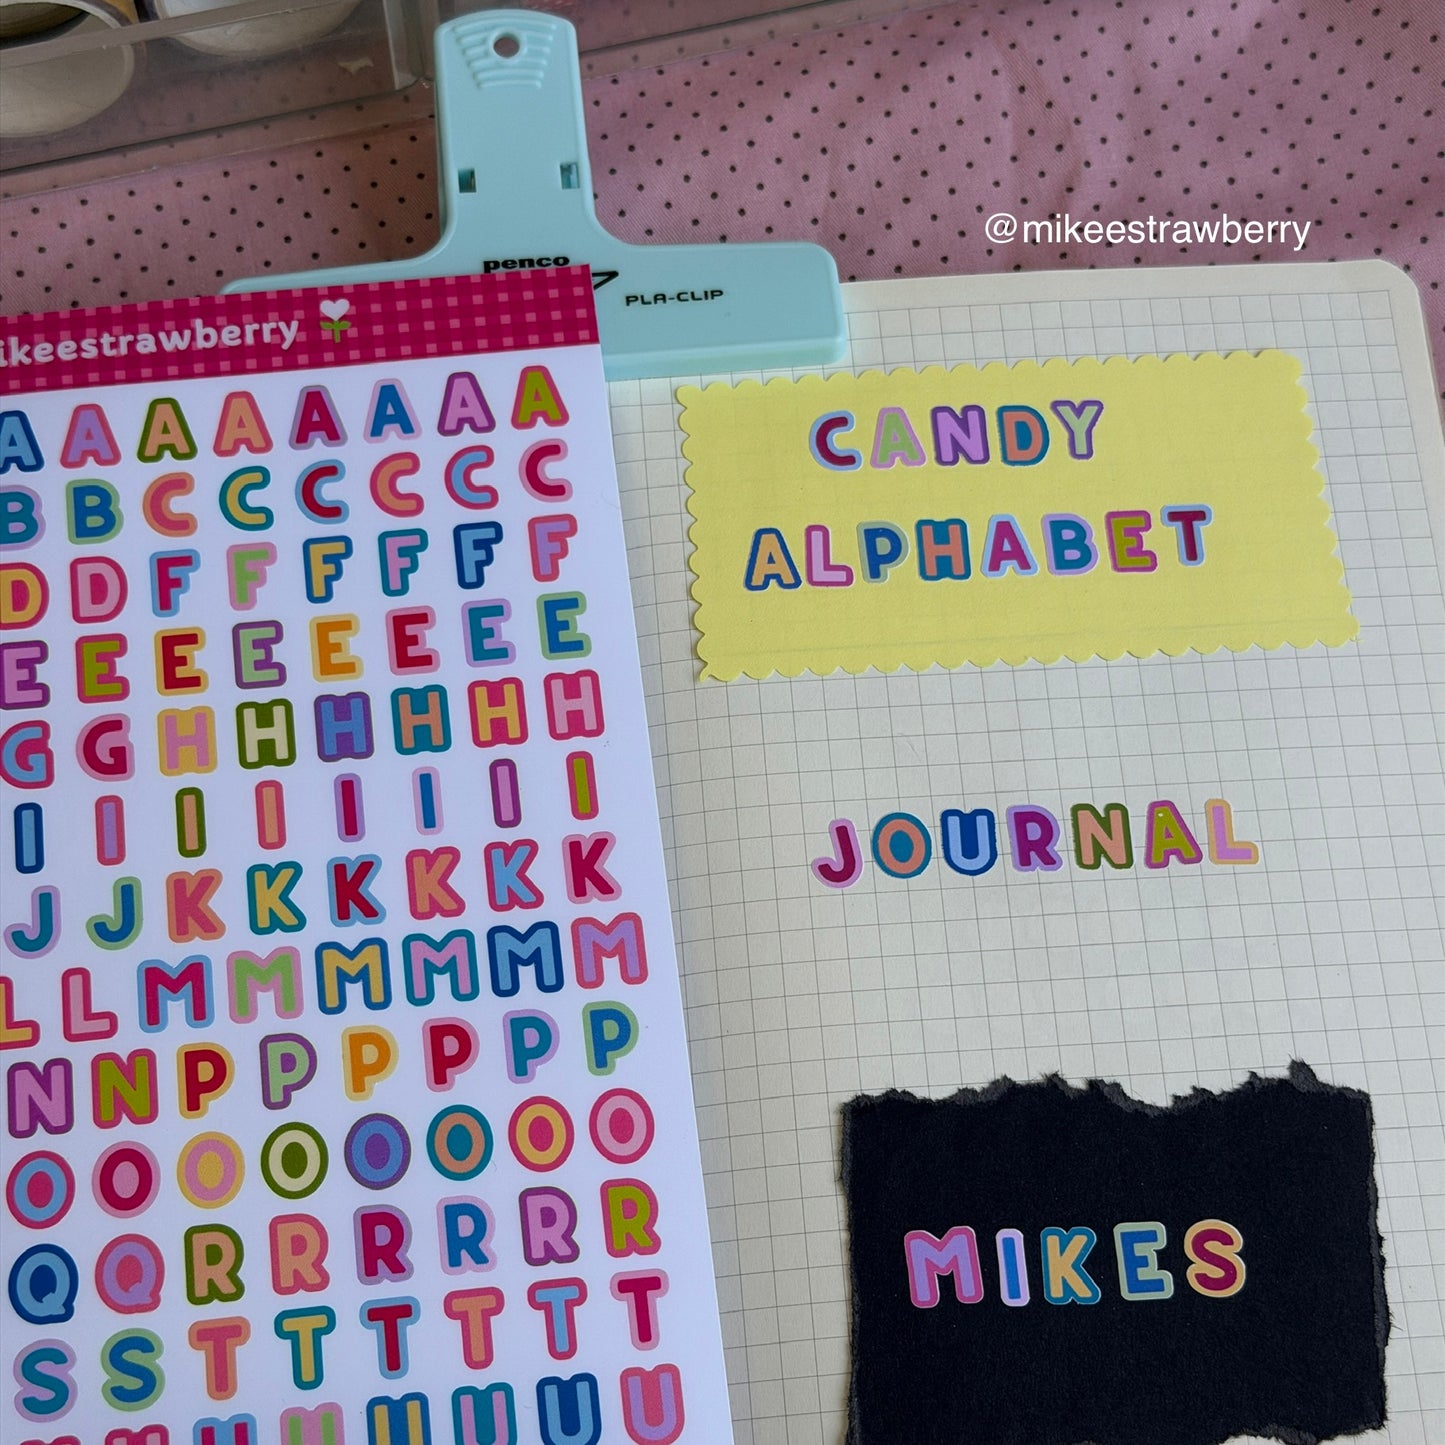 @mikeestrawberry
penco
PLA-CLIP
ikeestrawberry
A A A A A A A A
B B C C C C C C
D D F F F F F F
E E E E E E E E
G G H H H H H H
I I I I I I I I
J J K K K K K K
L L M M M M M M
N N P P P P P P
O O O O O O O O
Q Q R R R R R R
S S T T T T T T
U U U U U U
CANDY
ALPHABET
JOURNAL
MIKES